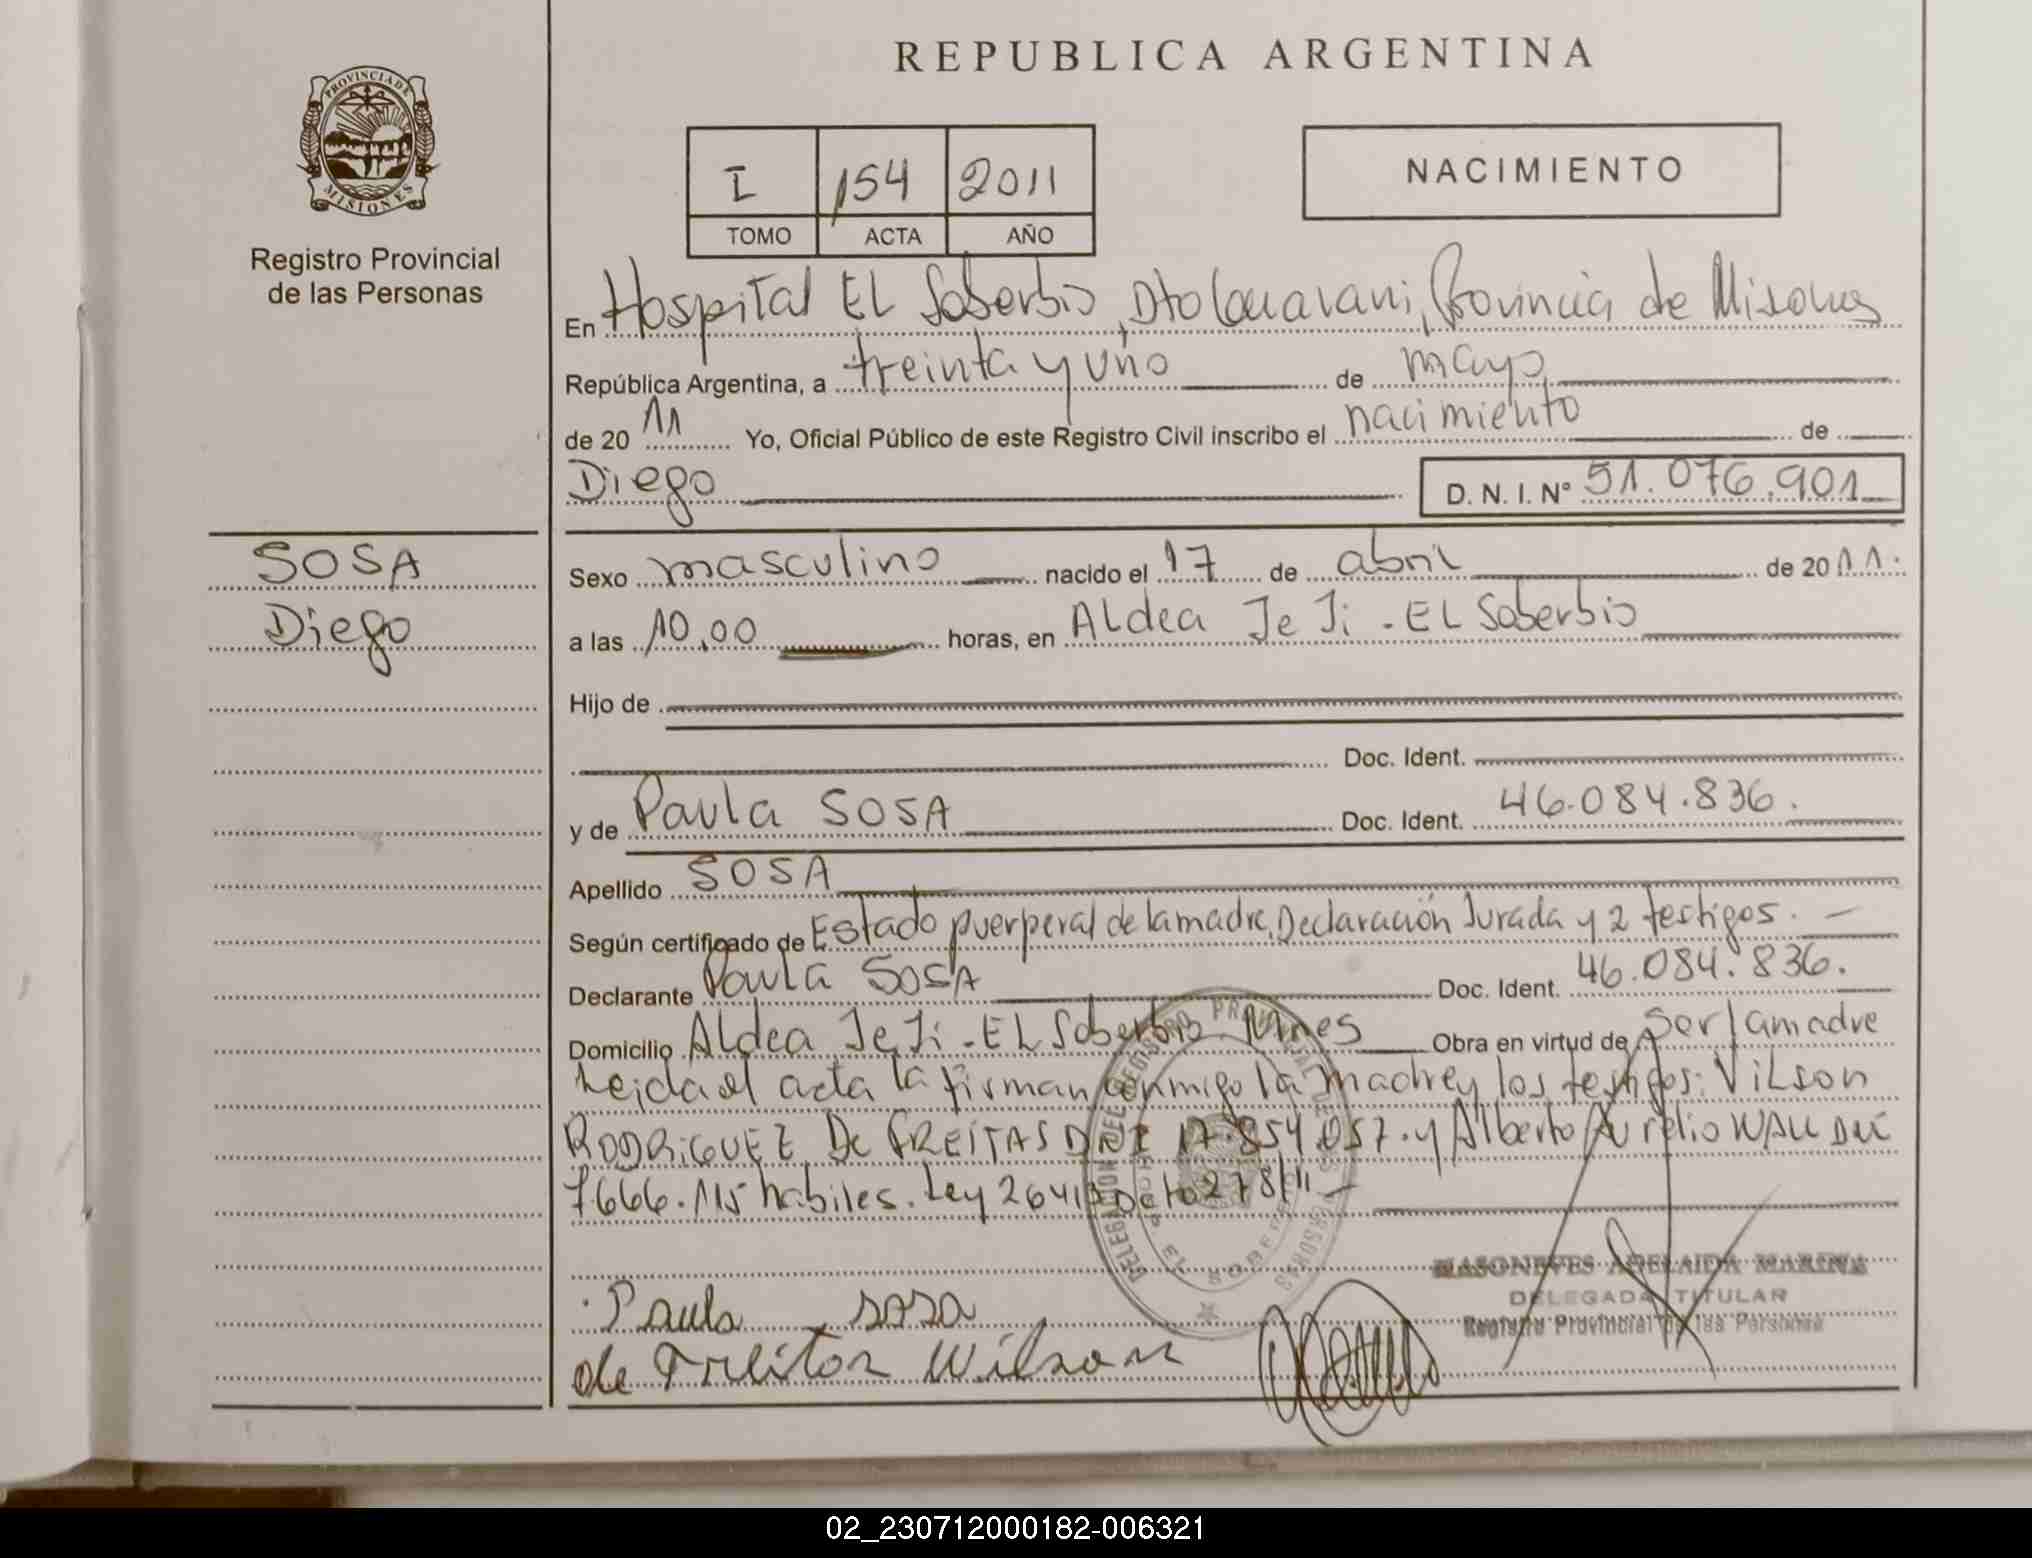 REPUBLICA ARGENTINA
PROVINCIA DE MISIONES
Registro Provincial
de las Personas
I 154 2011
TOMO ACTA AÑO
NACIMIENTO
En Hospital EL Soberbio, Dto Guarani, Provincia de Misiones
República Argentina, a treinta y uno de mayo
de 2011 Yo, Oficial Público de este Registro Civil inscribo el nacimiento de
Diego D. N. I. Nº 51.076.901
SOSA
Diego
Sexo masculino nacido el 17 de abril de 2011.
a las 10,00 horas, en Aldea JeJi - EL Soberbio
Hijo de
Doc. Ident.
y de Paula SOSA Doc. Ident. 46.084.836.
Apellido SOSA
Según certificado de Estado puerperal de la madre, Declaración Jurada y 2 testigos.
Declarante Paula SOSA Doc. Ident. 46.084.836.
Domicilio Aldea JeJi - EL Soberbio Mnes Obra en virtud de ser la madre
Leida el acta la firman conmigo la madre y los testigos: Vilson
RODRIGUEZ De FREITAS DNI 17.854.057. y Alberto Aurelio WALL DNI
7666.115 habiles. Ley 26413 Dcto 278/11
Paula sosa
de Freitas Wilson
DELEGACION DEL REGISTRO PROVINCIAL DE LAS PERSONAS
EL SOBERBIO
MASONEVES ADELAIDA MARINA
DELEGADA TITULAR
Registro Provincial de las Personas
02_230712000182-006321